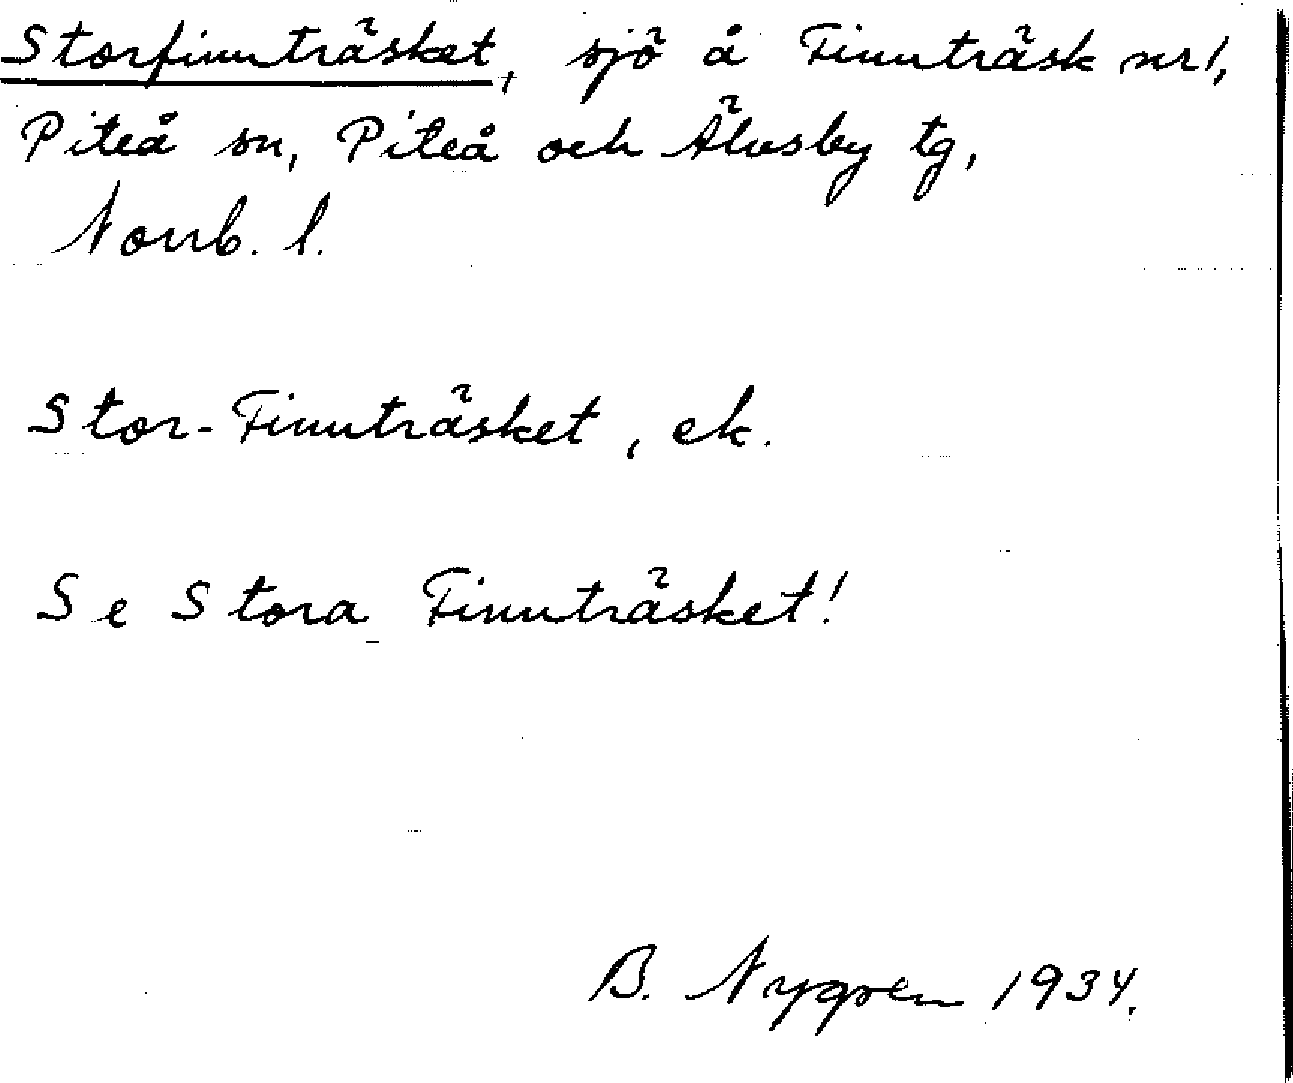 Storfinnträsket, sjö å Finnträsk nr 1,
Piteå sn, Piteå och Älvsby tg,
Norrb. l.
Stor-Finnträsket, ek.
Se Stora Finnträsket!
B. Nygren 1934.